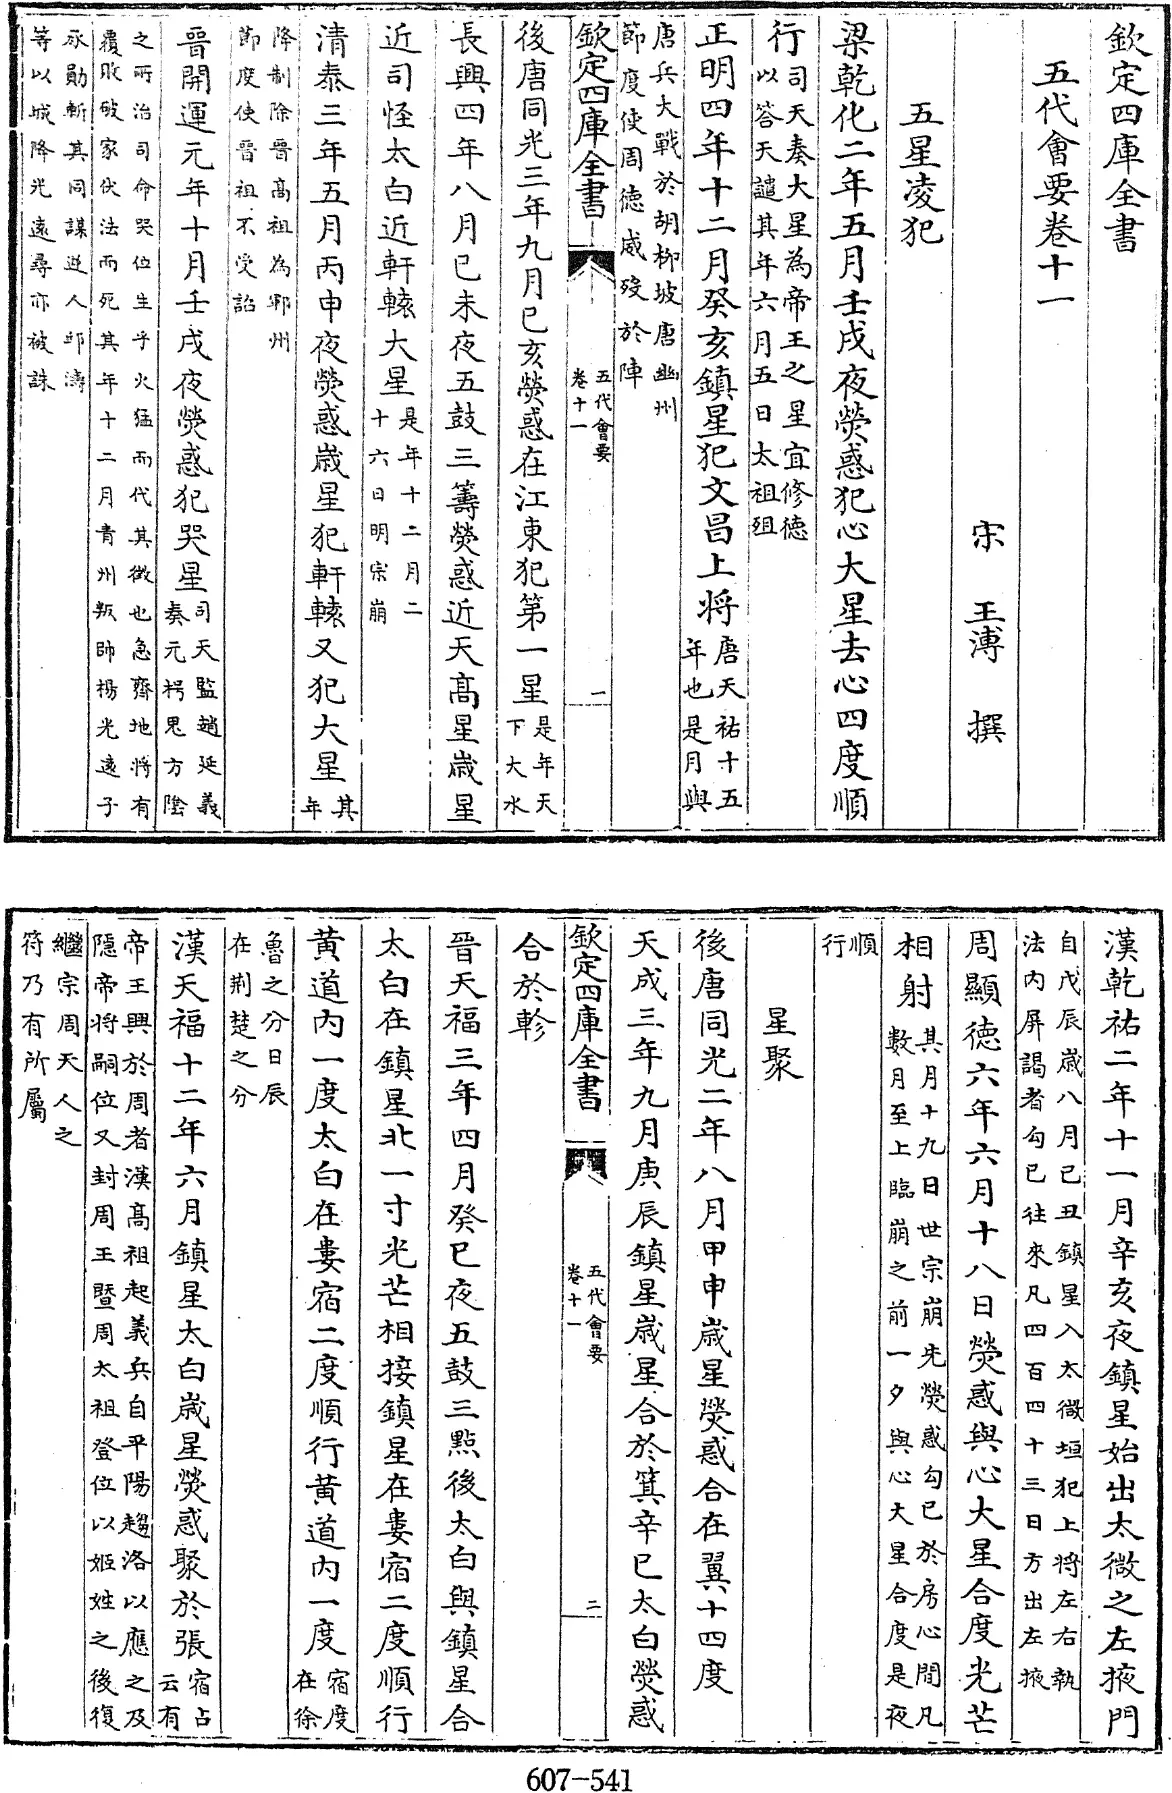 欽定四庫全書
五代會要卷十一
宋 王溥 撰
五星凌犯
梁乾化二年五月壬戌夜熒惑犯心大星去心四度順
行司天奏大星為帝王之星宜修德
以答天譴其年六月五日太祖殂
正明四年十二月癸亥鎮星犯文昌上將唐天祐十五
年也是月與
唐兵大戰於胡柳坡唐幽州
節度使周德威歿於陣
欽定四庫全書
五代會要
卷十一
一
後唐同光三年九月己亥熒惑在江東犯第一星是年天
下大水
長興四年八月己未夜五鼓三籌熒惑近天高星歲星
近司怪太白近軒轅大星是年十二月二
十六日明宗崩
清泰三年五月丙申夜熒惑歲星犯軒轅又犯大星其
年
降制除晉高祖為鄆州
節度使晉祖不受詔
晉開運元年十月壬戌夜熒惑犯哭星司天監趙延義
奏元枵思方陰
之所治司命哭位生乎火猛而代其徵也急齊地將有
覆敗破家伏法而死其年十二月青州叛帥楊光遠子
承勳斬其同謀逆人邱濤
等以城降光遠尋亦被誅
漢乾祐二年十一月辛亥夜鎮星始出太微之左掖門
自戊辰歲八月己丑鎮星入太微垣犯上將左右執
法內屏謁者勾已往來凡四百四十三日方出左掖
周顯德六年六月十八日熒惑與心大星合度光芒
相射其月十九日世宗崩先熒惑勾已於房心間凡
數月至上臨崩之前一夕與心大星合度是夜
順
行
星聚
後唐同光二年八月甲申歲星熒惑合在翼十四度
天成三年九月庚辰鎮星歲星合於箕辛巳太白熒惑
欽定四庫全書
五代會要
卷十一
二
合於軫
晉天福三年四月癸巳夜五鼓三點後太白與鎮星合
太白在鎮星北一寸光芒相接鎮星在婁宿二度順行
黃道內一度太白在婁宿二度順行黃道內一度宿度
在徐
魯之分日辰
在荊楚之分
漢天福十二年六月鎮星太白歲星熒惑聚於張宿占
云有
帝王興於周者漢高祖起義兵自平陽趨洛以應之及
隱帝將嗣位又封周王暨周太祖登位以姬姓之後復
繼宗周天人之
符乃有所屬
607-541